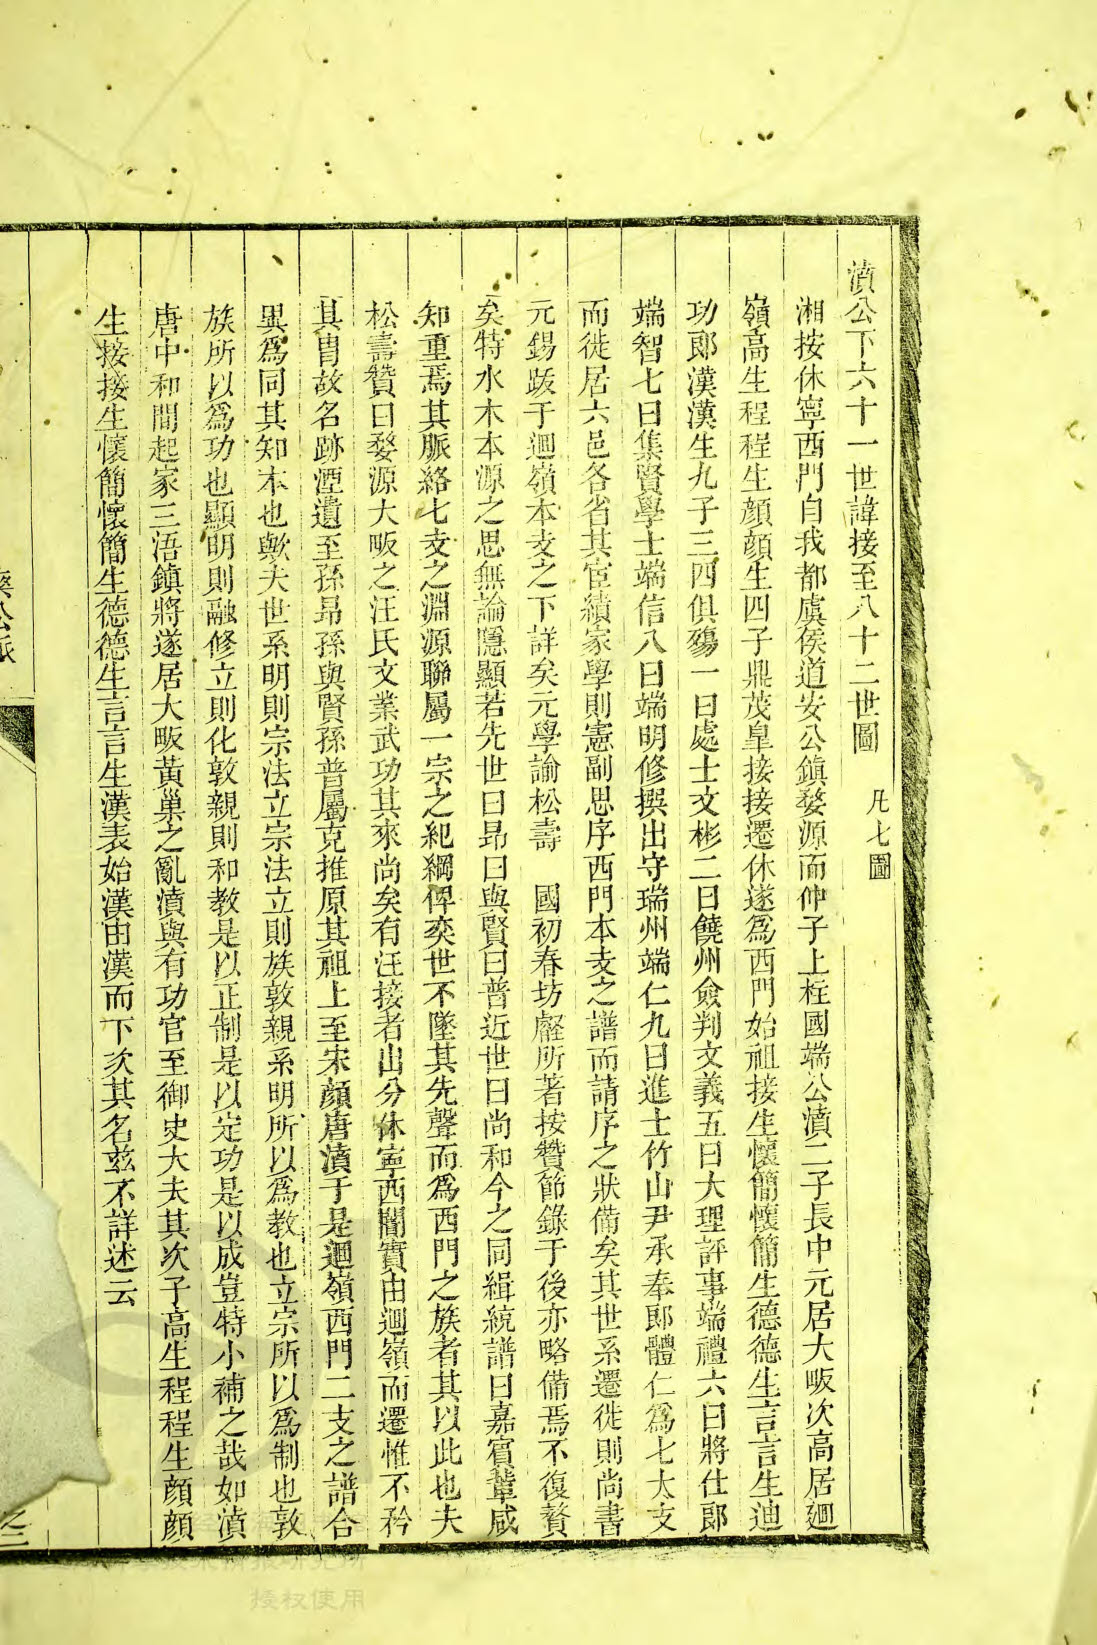 濆公下六十一世諱接至八十二世圖　凡七圖
湘按休寧西門自我都虞侯道安公鎮婺源而仲子上柱國端公濆二子長中元居大畈次高居迴
嶺高生程程生顔顔生四子鼎茂皇接接遷休遂爲西門始祖接生懷簡懷簡生德德生言言生迪
功郎漢漢生九子三四俱殤一曰處士文彬二曰饒州僉判文義五曰大理評事端禮六曰將仕郎
端智七曰集賢學士端信八曰端明修撰出守瑞州端仁九曰進士竹山尹承奉郎體仁爲七大支
而徙居六邑各省其宦績家學則憲副思序西門本支之譜而請序之狀備矣其世系遷徙則尚書
元錫跋于迴嶺本支之下詳矣元學諭松壽　國初春坊叡所著按贊節錄于後亦略備焉不復贅
矣特水木本源之思無論隱顯若先世曰昻曰與賢曰普近世曰尚和今之同緝統譜曰嘉賓輩咸
知重焉其脈絡七支之淵源聯屬一宗之紀綱俾奕世不墜其先聲而爲西門之族者其以此也夫
松壽贊曰婺源大畈之汪氏文業武功其來尚矣有汪接者出分休寧西關實由迴嶺而遷惟不矜
其胄故名跡湮遺至孫昻孫與賢孫普屬克推原其祖上至宋顔唐濆于是迴嶺西門二支之譜合
異爲同其知本也歟夫世系明則宗法立宗法立則族敦親系明所以爲教也立宗所以爲制也敦
族所以爲功也顯明則融修立則化敦親則和教是以正制是以定功是以成豈特小補之哉如濆
唐中和間起家三浯鎮將遂居大畈黃巢之亂濆與有功官至御史大夫其次子高生程程生顔顔
生接接生懷簡懷簡生德德生言言生漢表始漢由漢而下次其名茲不詳述云
公派
之三
授权使用